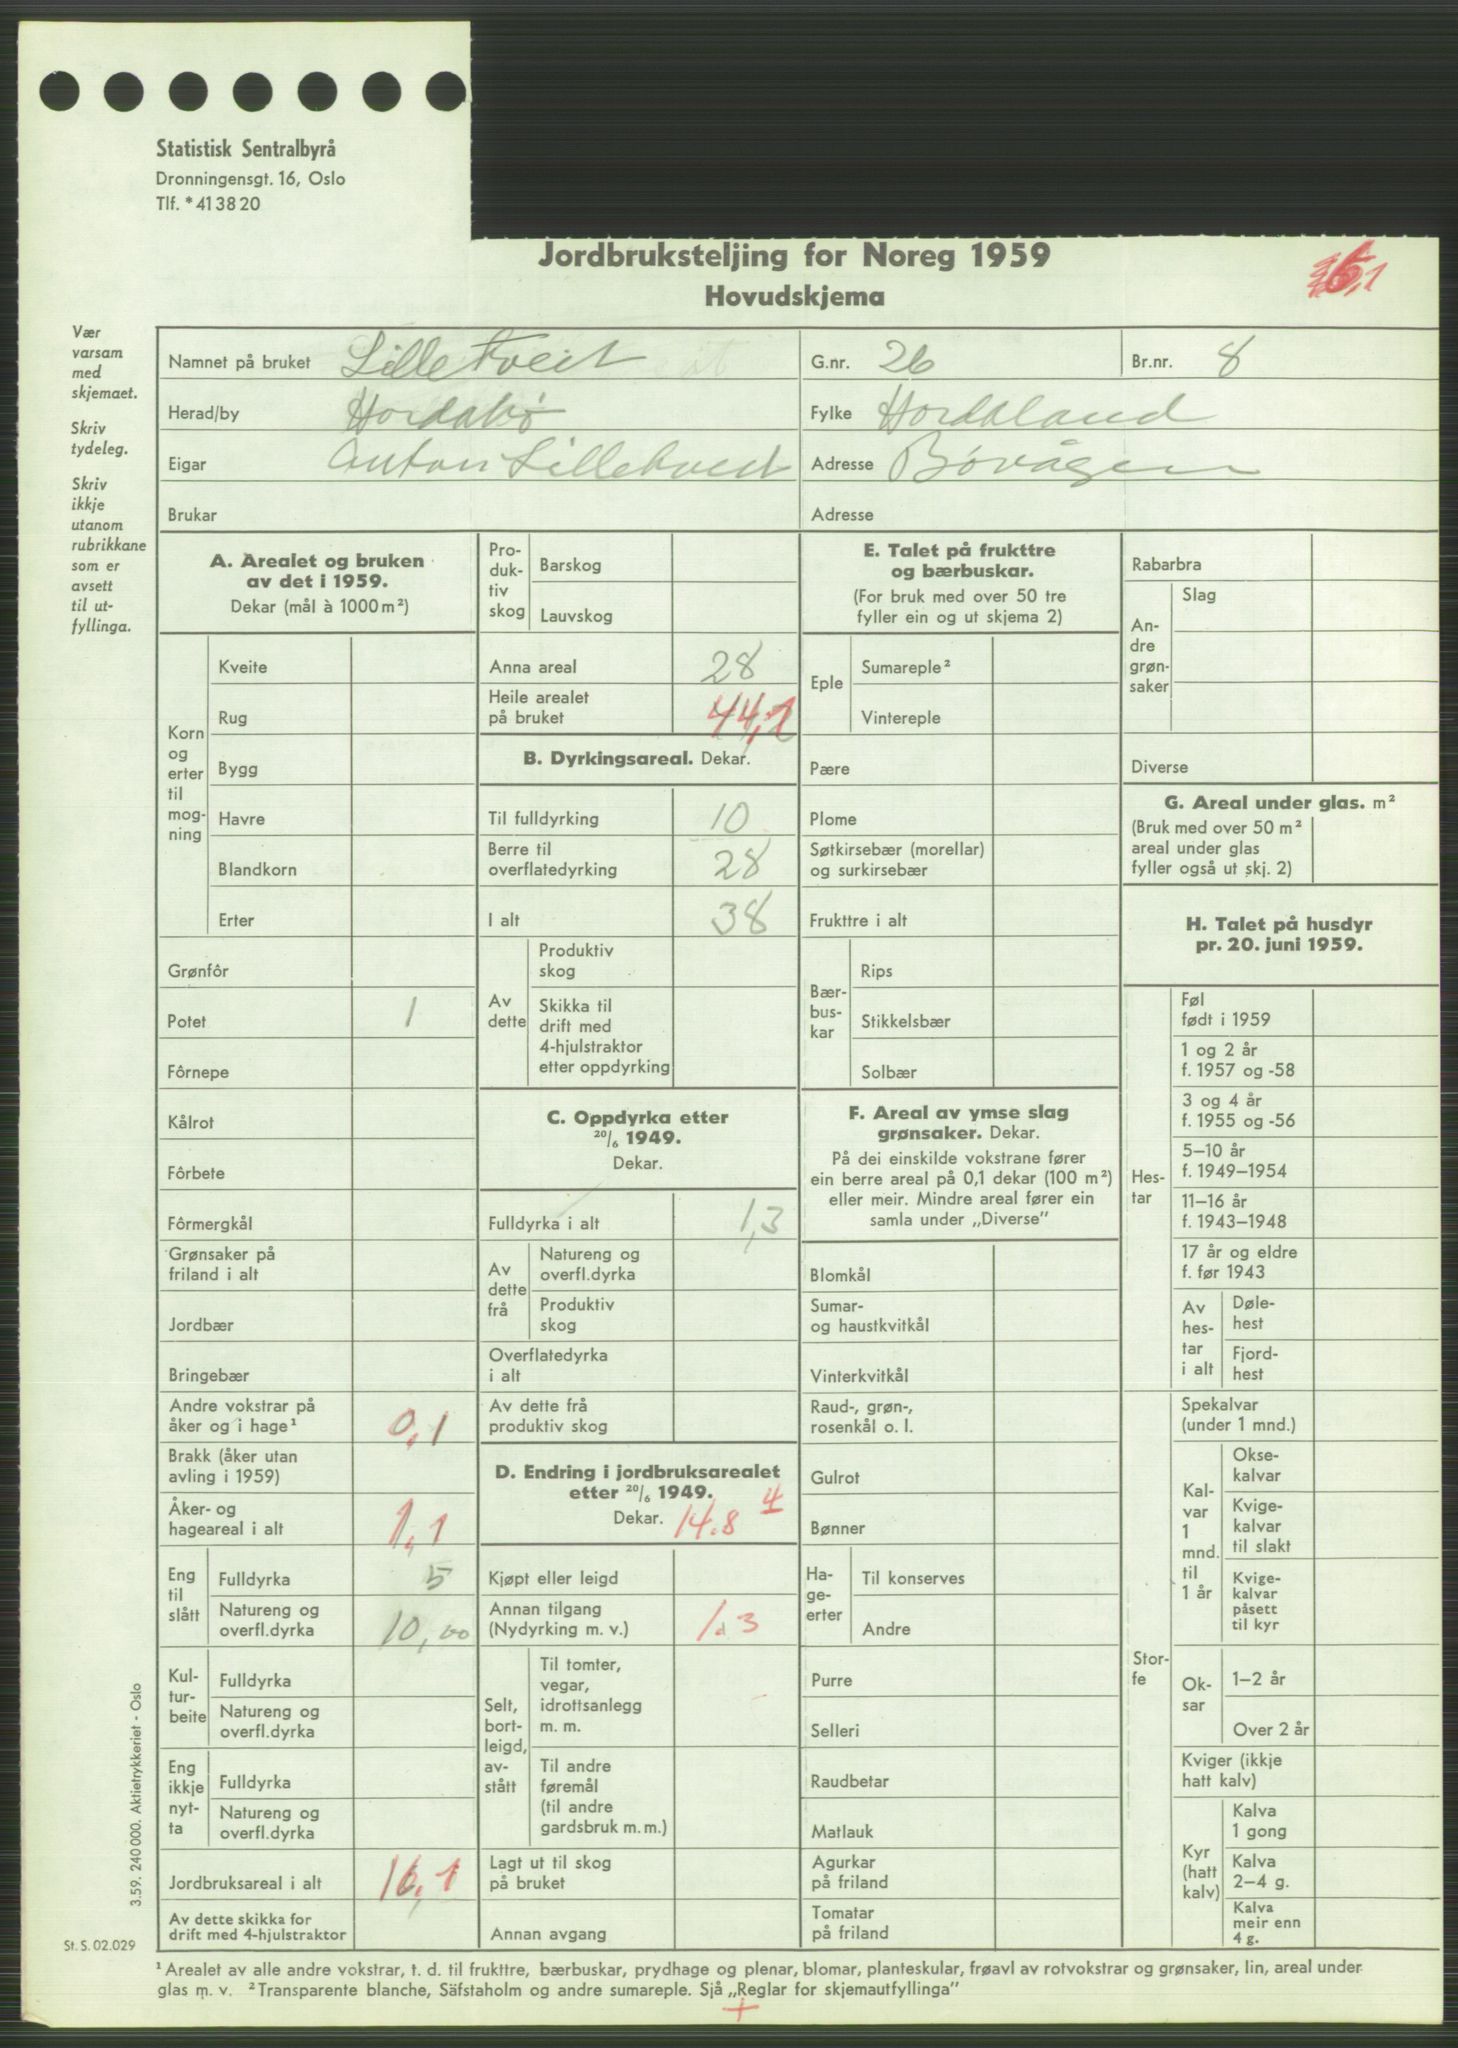 Statistisk Sentralbyrå
Dronningensgt. 16, Oslo
Tlf. * 41 38 20
Jordbruksteljing for Noreg 1959
Hovudskjema
Vær
varsam
med
skjemaet.
Skriv
tydeleg.
Skriv
ikkje
utanom
rubrikkane
som er
avsett
til ut-
fyllinga.
Namnet på bruket Lilletveit G.nr. 26 Br.nr. 8
Herad/by Hordabø Fylke Hordaland
Eigar Anton Lilletveit Adresse Bøvågen
Brukar Adresse
A. Arealet og bruken
av det i 1959.
Dekar (mål à 1000 m²)
Korn
og
erter
til
mog-
ning
Kveite
Rug
Bygg
Havre
Blandkorn
Erter
Grønfôr
Potet 1
Fôrnepe
Kålrot
Fôrbete
Fôrmergkål
Grønsaker på
friland i alt
Jordbær
Bringebær
Andre vokstrar på
åker og i hage¹ 0,1
Brakk (åker utan
avling i 1959)
Åker- og
hageareal i alt 1,1
Eng
til
slått
Fulldyrka 5
Natureng og
overfl.dyrka 10,00
Kul-
tur-
beite
Fulldyrka
Natureng og
overfl.dyrka
Eng
ikkje
nyt-
ta
Fulldyrka
Natureng og
overfl.dyrka
Jordbruksareal i alt 16,1
Av dette skikka for
drift med 4-hjulstraktor
Pro-
duk-
tiv
skog
Barskog
Lauvskog
Anna areal 28
Heile arealet
på bruket 44,1
B. Dyrkingsareal. Dekar.
Til fulldyrking 10
Berre til
overflatedyrking 28
I alt 38
Av
dette
Produktiv
skog
Skikka til
drift med
4-hjulstraktor
etter oppdyrking
C. Oppdyrka etter
20/6 1949.
Dekar.
Fulldyrka i alt 1,3
Av
dette
frå
Natureng og
overfl.dyrka
Produktiv
skog
Overflatedyrka
i alt
Av dette frå
produktiv skog
D. Endring i jordbruksarealet
etter 20/6 1949. 4
Dekar. 14.8
Kjøpt eller leigd
Annan tilgang
(Nydyrking m. v.) 1.3
Selt,
bort-
leigd,
av-
stått
Til tomter,
vegar,
idrottsanlegg
m. m.
Til andre
føremål
(til andre
gardsbruk m. m.)
Lagt ut til skog
på bruket
Annan avgang
E. Talet på frukttre
og bærbuskar.
(For bruk med over 50 tre
fyller ein og ut skjema 2)
Eple
Sumareple²
Vintereple
Pære
Plome
Søtkirsebær (morellar)
og surkirsebær
Frukttre i alt
Bær-
bus-
kar
Rips
Stikkelsbær
Solbær
F. Areal av ymse slag
grønsaker. Dekar.
På dei einskilde vokstrane fører
ein berre areal på 0,1 dekar (100 m²)
eller meir. Mindre areal fører ein
samla under „Diverse”
Blomkål
Sumar-
og haustkvitkål
Vinterkvitkål
Raud-, grøn-,
rosenkål o. l.
Gulrot
Bønner
Ha-
ge-
erter
Til konserves
Andre
Purre
Selleri
Raudbetar
Matlauk
Agurkar
på friland
Tomatar
på friland
Rabarbra
An-
dre
grøn-
saker
Slag
Diverse
G. Areal under glas. m²
(Bruk med over 50 m²
areal under glas
fyller også ut skj. 2)
H. Talet på husdyr
pr. 20. juni 1959.
Hes-
tar
Føl
født i 1959
1 og 2 år
f. 1957 og -58
3 og 4 år
f. 1955 og -56
5–10 år
f. 1949–1954
11–16 år
f. 1943–1948
17 år og eldre
f. før 1943
Av
hes-
tar
i alt
Døle-
hest
Fjord-
hest
Stor-
fe
Spekalvar
(under 1 mnd.)
Kal-
var
1
mnd.
til
1 år
Okse-
kalvar
Kvige-
kalvar
til slakt
Kvige-
kalvar
påsett
til kyr
Ok-
sar
1–2 år
Over 2 år
Kviger (ikkje
hatt kalv)
Kyr
(hatt
kalv)
Kalva
1 gong
Kalva
2–4 g.
Kalva
meir enn
4 g.
3.59. 240 000. Aktietrykkeriet - Oslo
St. S. 02.029
¹ Arealet av alle andre vokstrar, t. d. til frukttre, bærbuskar, prydhage og plenar, blomar, planteskular, frøavl av rotvokstrar og grønsaker, lin, areal under
glas m. v. ² Transparente blanche, Säfstaholm og andre sumareple. Sjå „Reglar for skjemautfyllinga”
+